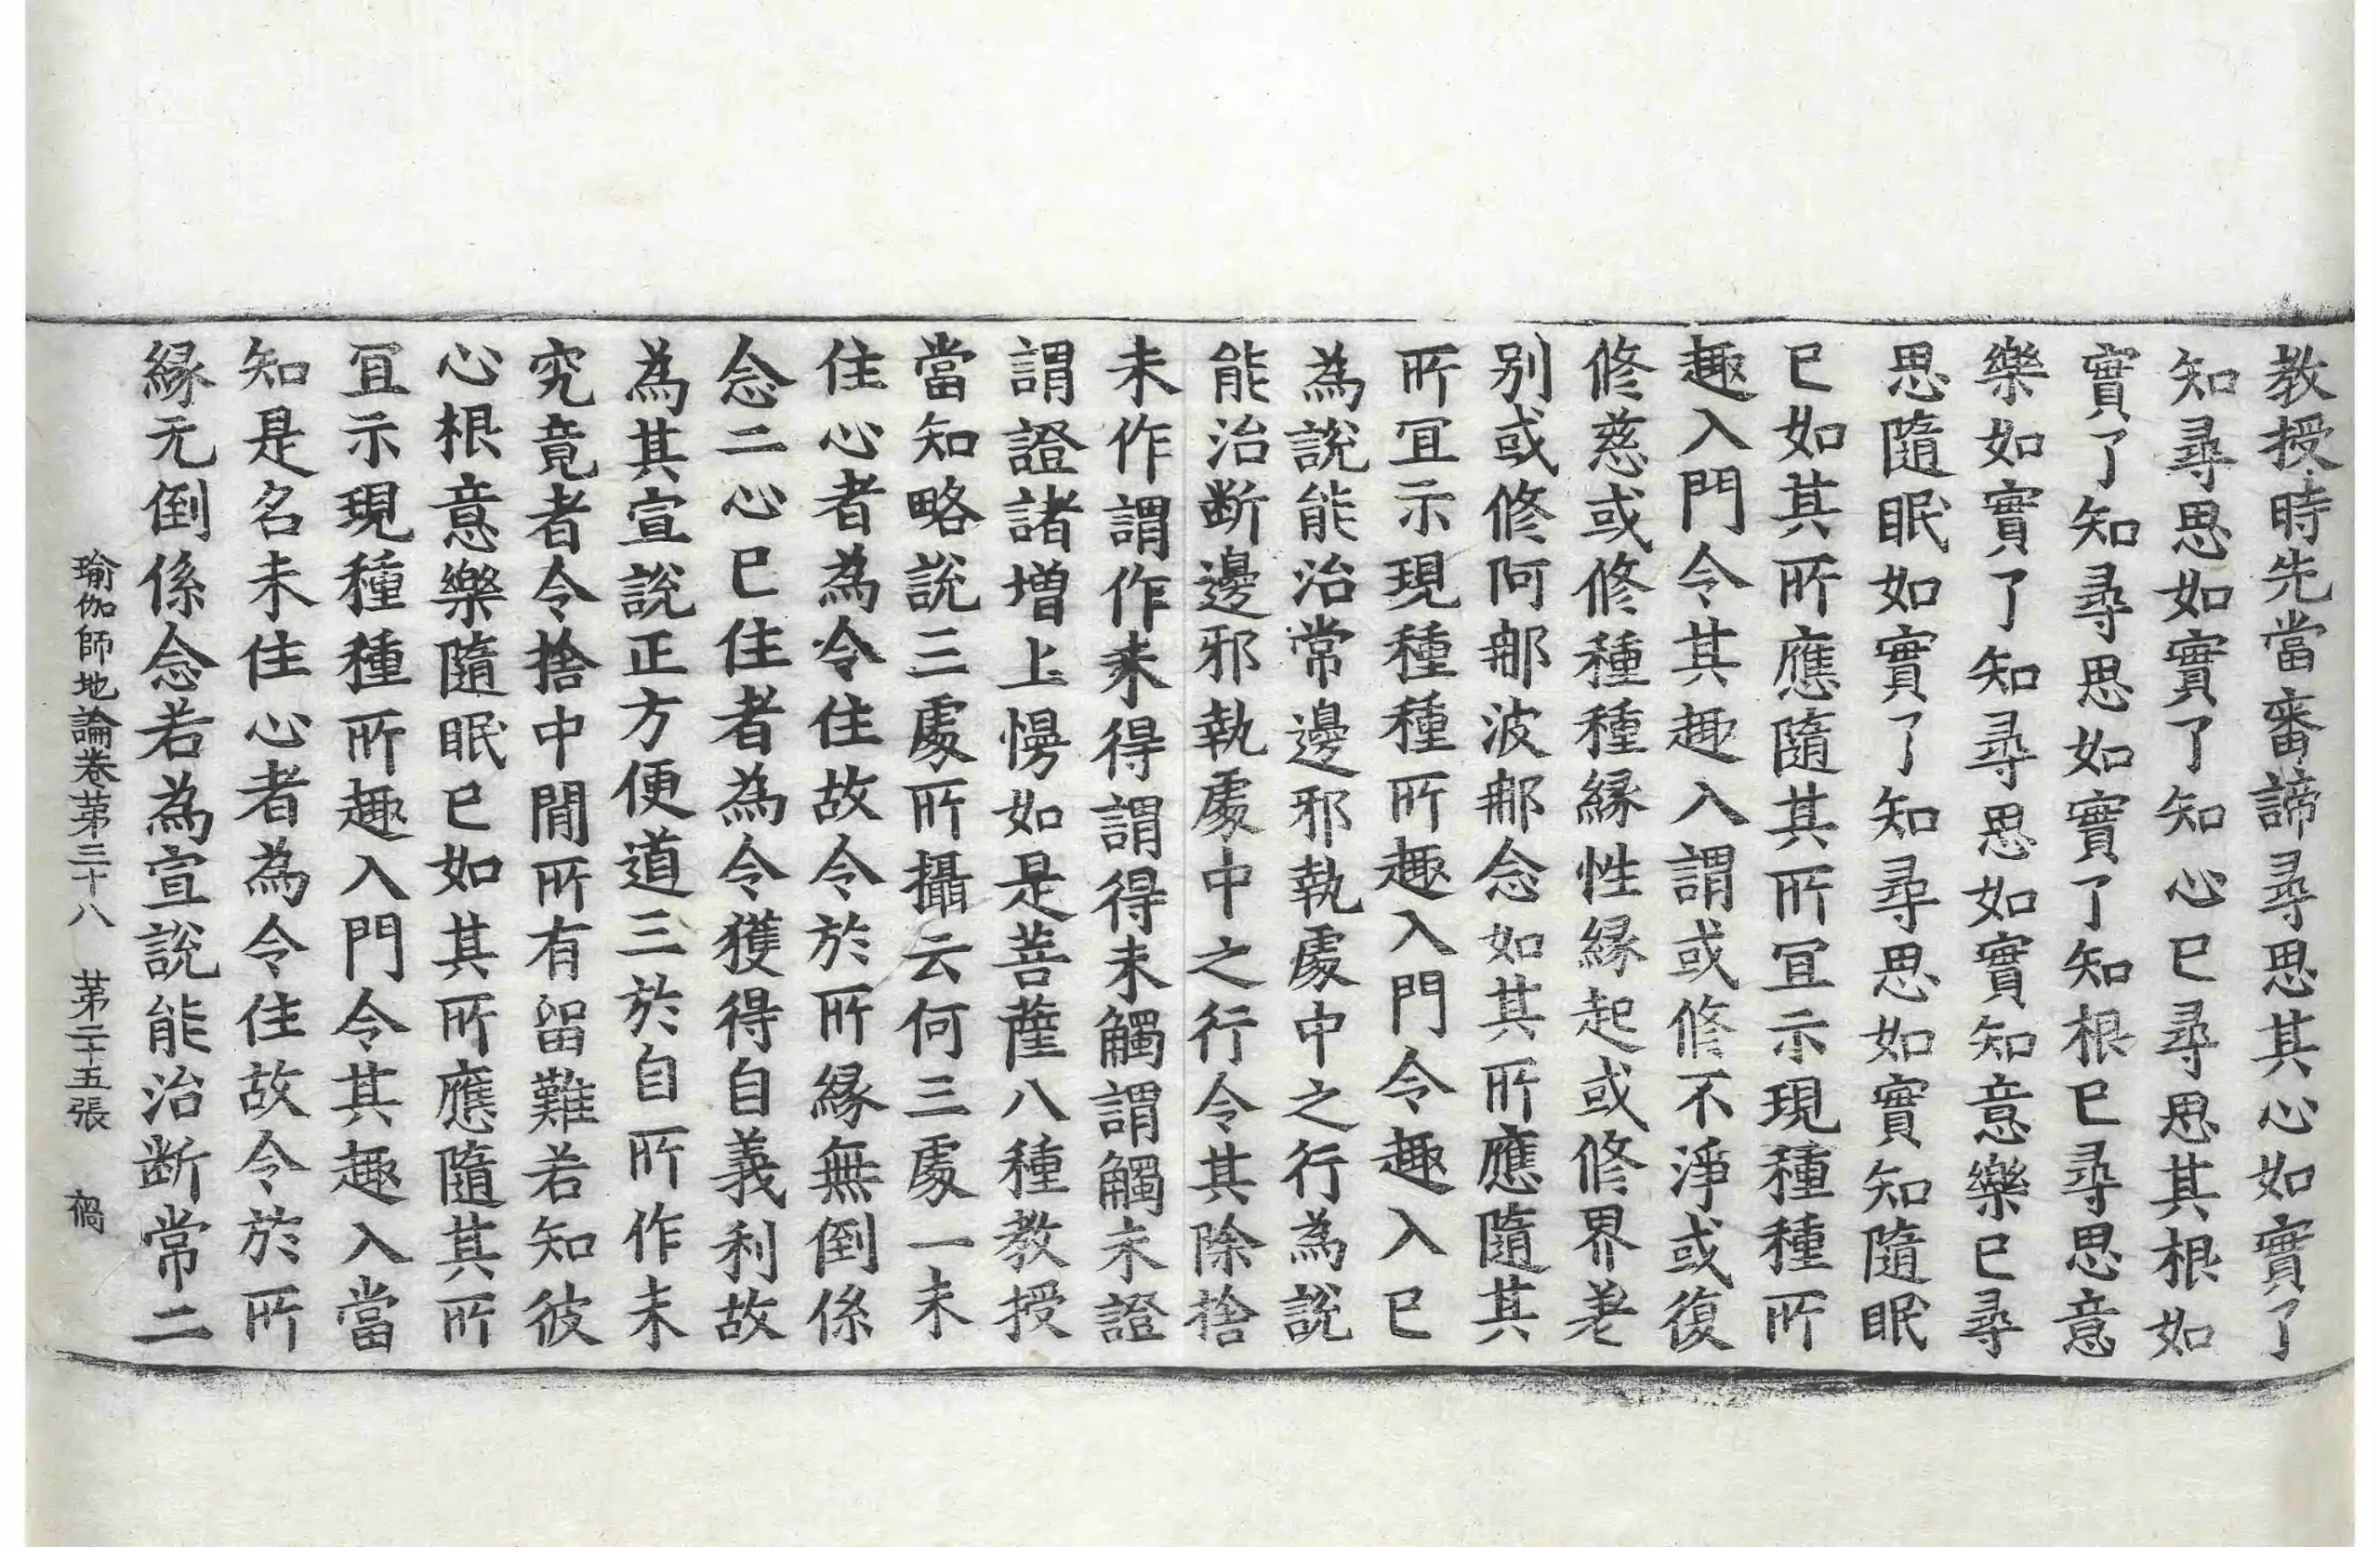 教授時先當審諦尋思其心如實了
知尋思如實了知心已尋思其根如
實了知尋思如實了知根已尋思意
樂如實了知尋思如實知意樂已尋
思隨眠如實了知尋思如實知隨眠
已如其所應隨其所宜示現種種所
趣入門令其趣入謂或修不淨或復
修慈或修種種緣性緣起或修界差
別或修阿那波那念如其所應隨其
所宜示現種種所趣入門令趣入已
為說能治常邊邪執處中之行為說
能治斷邊邪執處中之行令其除捨
未作謂作未得謂得未觸謂觸未證
謂證諸增上慢如是菩薩八種教授
當知略說三處所攝云何三處一未
住心者為令住故令於所緣無倒係
念二心已住者為令獲得自義利故
為其宣說正方便道三於自所作未
究竟者令捨中間所有留難若知彼
心根意樂隨眠已如其所應隨其所
宜示現種種所趣入門令其趣入當
知是名未住心者為令住故令於所
緣无倒係念若為宣說能治断常二
瑜伽師地論卷第三十八 第二十五張 禍